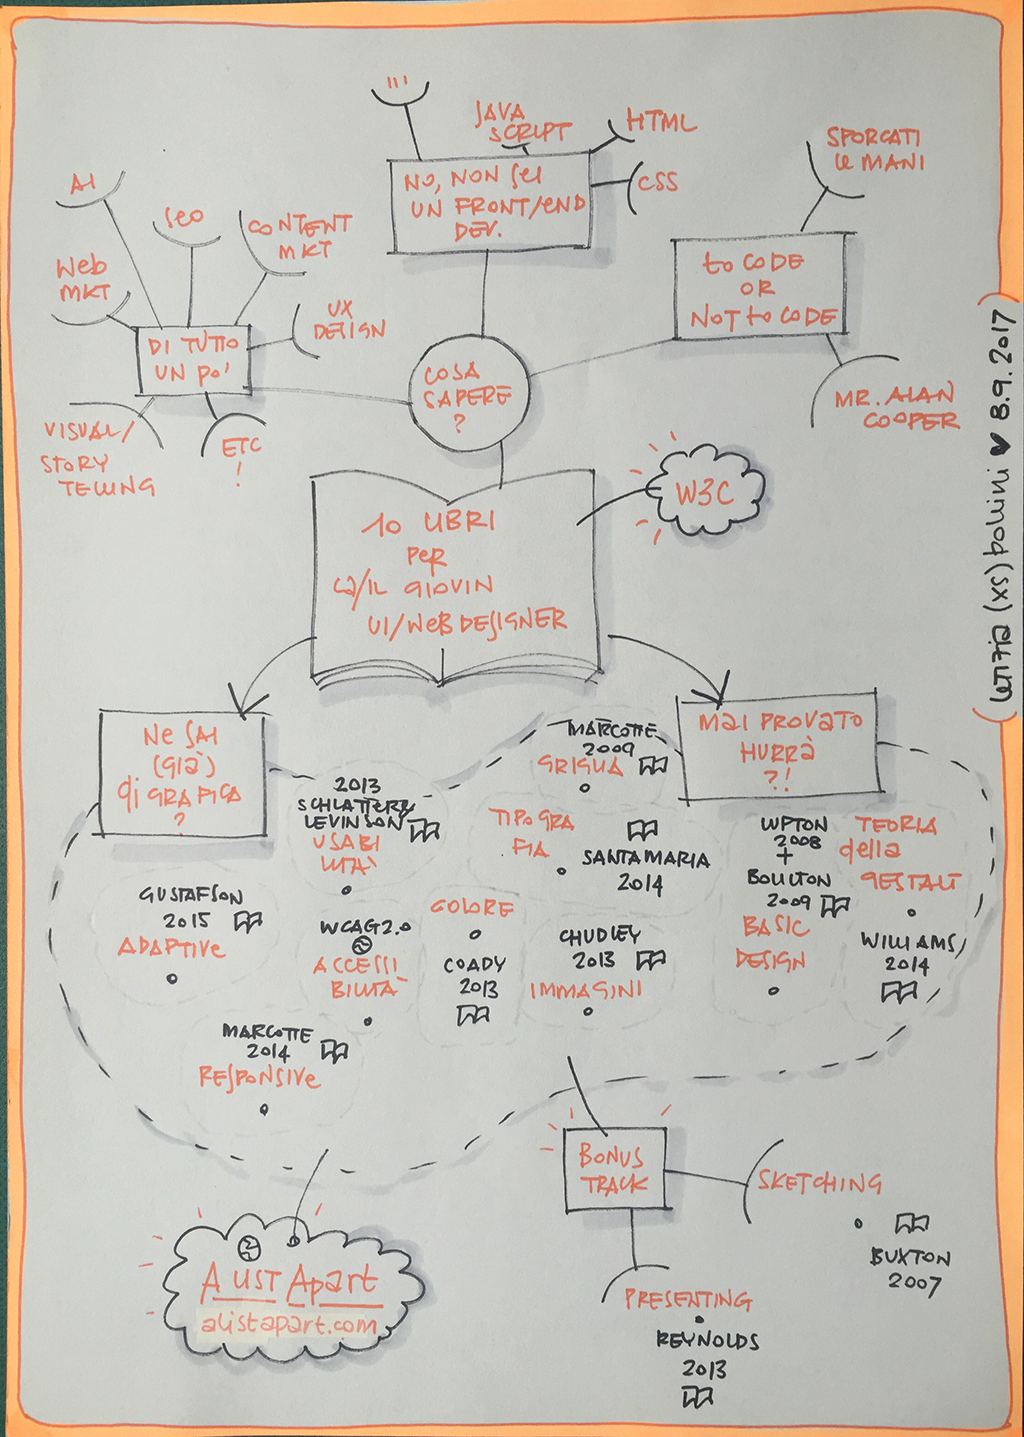 JAVA
SCRIPT
HTML
CSS
NO, NON SEI
UN FRONT/END
DEV.
SPORCATI
LE MANI
to CODE
OR
NOT to CODE
MR. ALAN
COOPER
AI
SEO
CONTENT
MKT
Web
MKT
UX
DESIGN
DI TUTTO
UN PO'
VISUAL/
STORY
TELLING
ETC
!
COSA
SAPERE
?
W3C
10 LIBRI
PER
LA/IL GIOVIN
UI/WEB DESIGNER
LETIZIA (XS) bollini ♥ 8.9.2017
NE SAI
(già)
di GRAFICA
?
MAI PROVATO
HURRÀ
?!
MARCOTTE
2009
GRIGLIA
2013
SCHLATTER/
LEVINSON
USABI
LITÀ
TIPOGRA
FIA
SANTAMARIA
2014
LUPTON
2008
+
BOULTON
2009
BASIC
DESIGN
TEORIA
della
GESTALT
WILLIAMS
2014
GUSTAFSON
2015
ADAPTIVE
WCAG2.0
ACCESSI
BILITÀ
COLORE
COADY
2013
CHUDLEY
2013
IMMAGINI
MARCOTTE
2014
RESPONSIVE
BONUS
TRACK
SKETCHING
BUXTON
2007
PRESENTING
REYNOLDS
2013
A LIST APart
alistapart.com